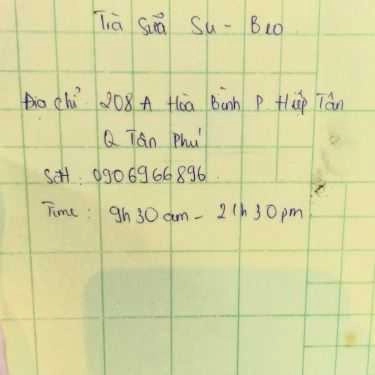 Trà Sữa Su - Beo
Địa chỉ 208 A Hoà Bình P. Hiệp Tân
Q Tân Phú
SĐT : 0906966896.
Time : 9h30 am - 21h30pm